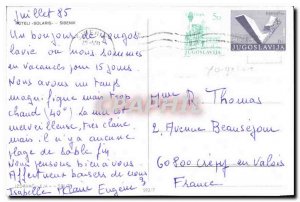 Juillet 85
HOTELI - SOLARIS - SIBENIK
Un bonjour de Yougos
lavie ou nous sommes
en vacances pour 15 jours
Nous avons un temps
magnifique mais trop
chaud (40°). La mer est
merveilleuse, tres claire
mais il n'y a aucune
plage de sable fin
Nous pensons bien à vous
Affectueux baisers de nous 3
Isabelle Alane Eugene
JUGOSLAVIJA
JUGOSLAVIJA
Mme R. Thomas
2, Avenue Beauséjour
60800 Crepy en Valois
France